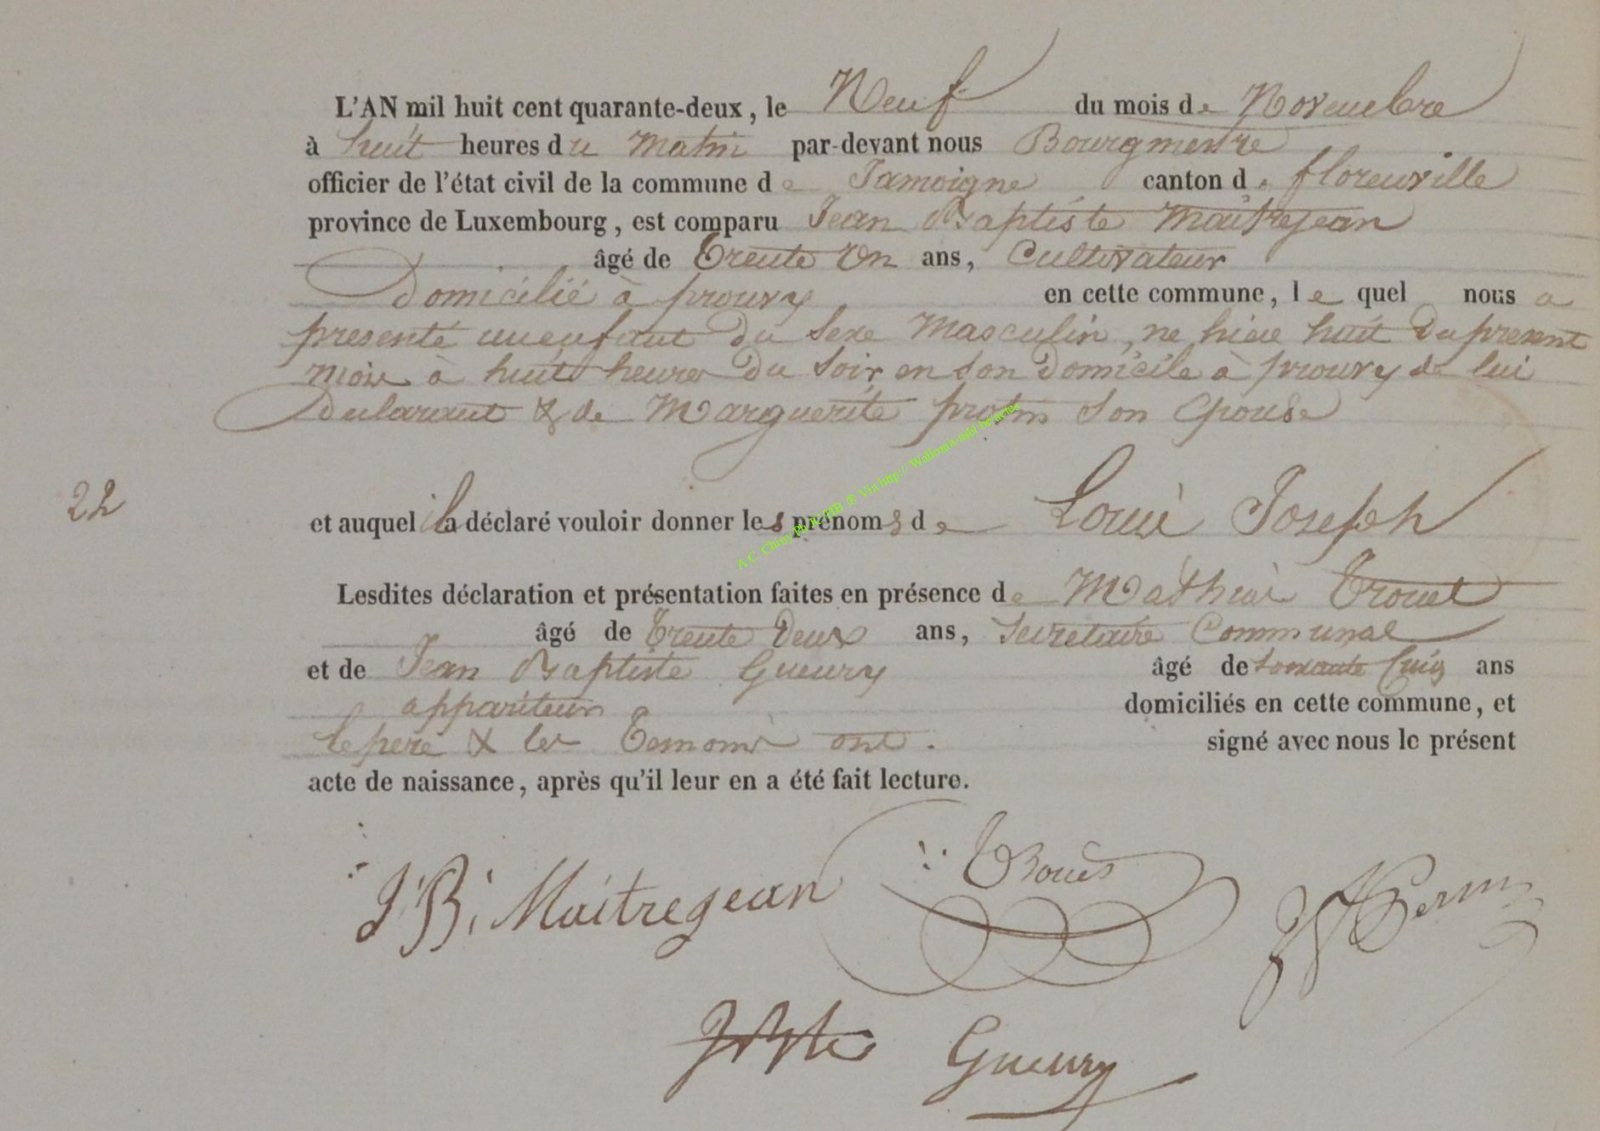 L'AN mil huit cent quarante-deux, le Neuf du mois de Novembre
à huit heures du Matin par-devant nous Bourgmestre
officier de l'état civil de la commune de Jamoigne canton de florenville
province de Luxembourg, est comparu Jean Baptiste Maitrejean
âgé de Trente Un ans, Cultivateur
Domicilié à prouvy en cette commune, le quel nous a
presenté un enfant du sexe Masculin, ne hier huit du present
mois à huit heures du soir en son Domicile à prouvy de lui
Declarant & de Marguerite protin son Epouse
22
et auquel il a déclaré vouloir donner les prénoms de Louis Joseph
Lesdites déclaration et présentation faites en présence de Mathias Trouet
âgé de Trente Deux ans, Secretaire Communal
et de Jean Baptiste Gueury âgé de soixante Cinq ans
appariteur domiciliés en cette commune, et
le pere & les Temoins ont. signé avec nous le présent
acte de naissance, après qu'il leur en a été fait lecture.
J. B. Maitrejean
Gueury